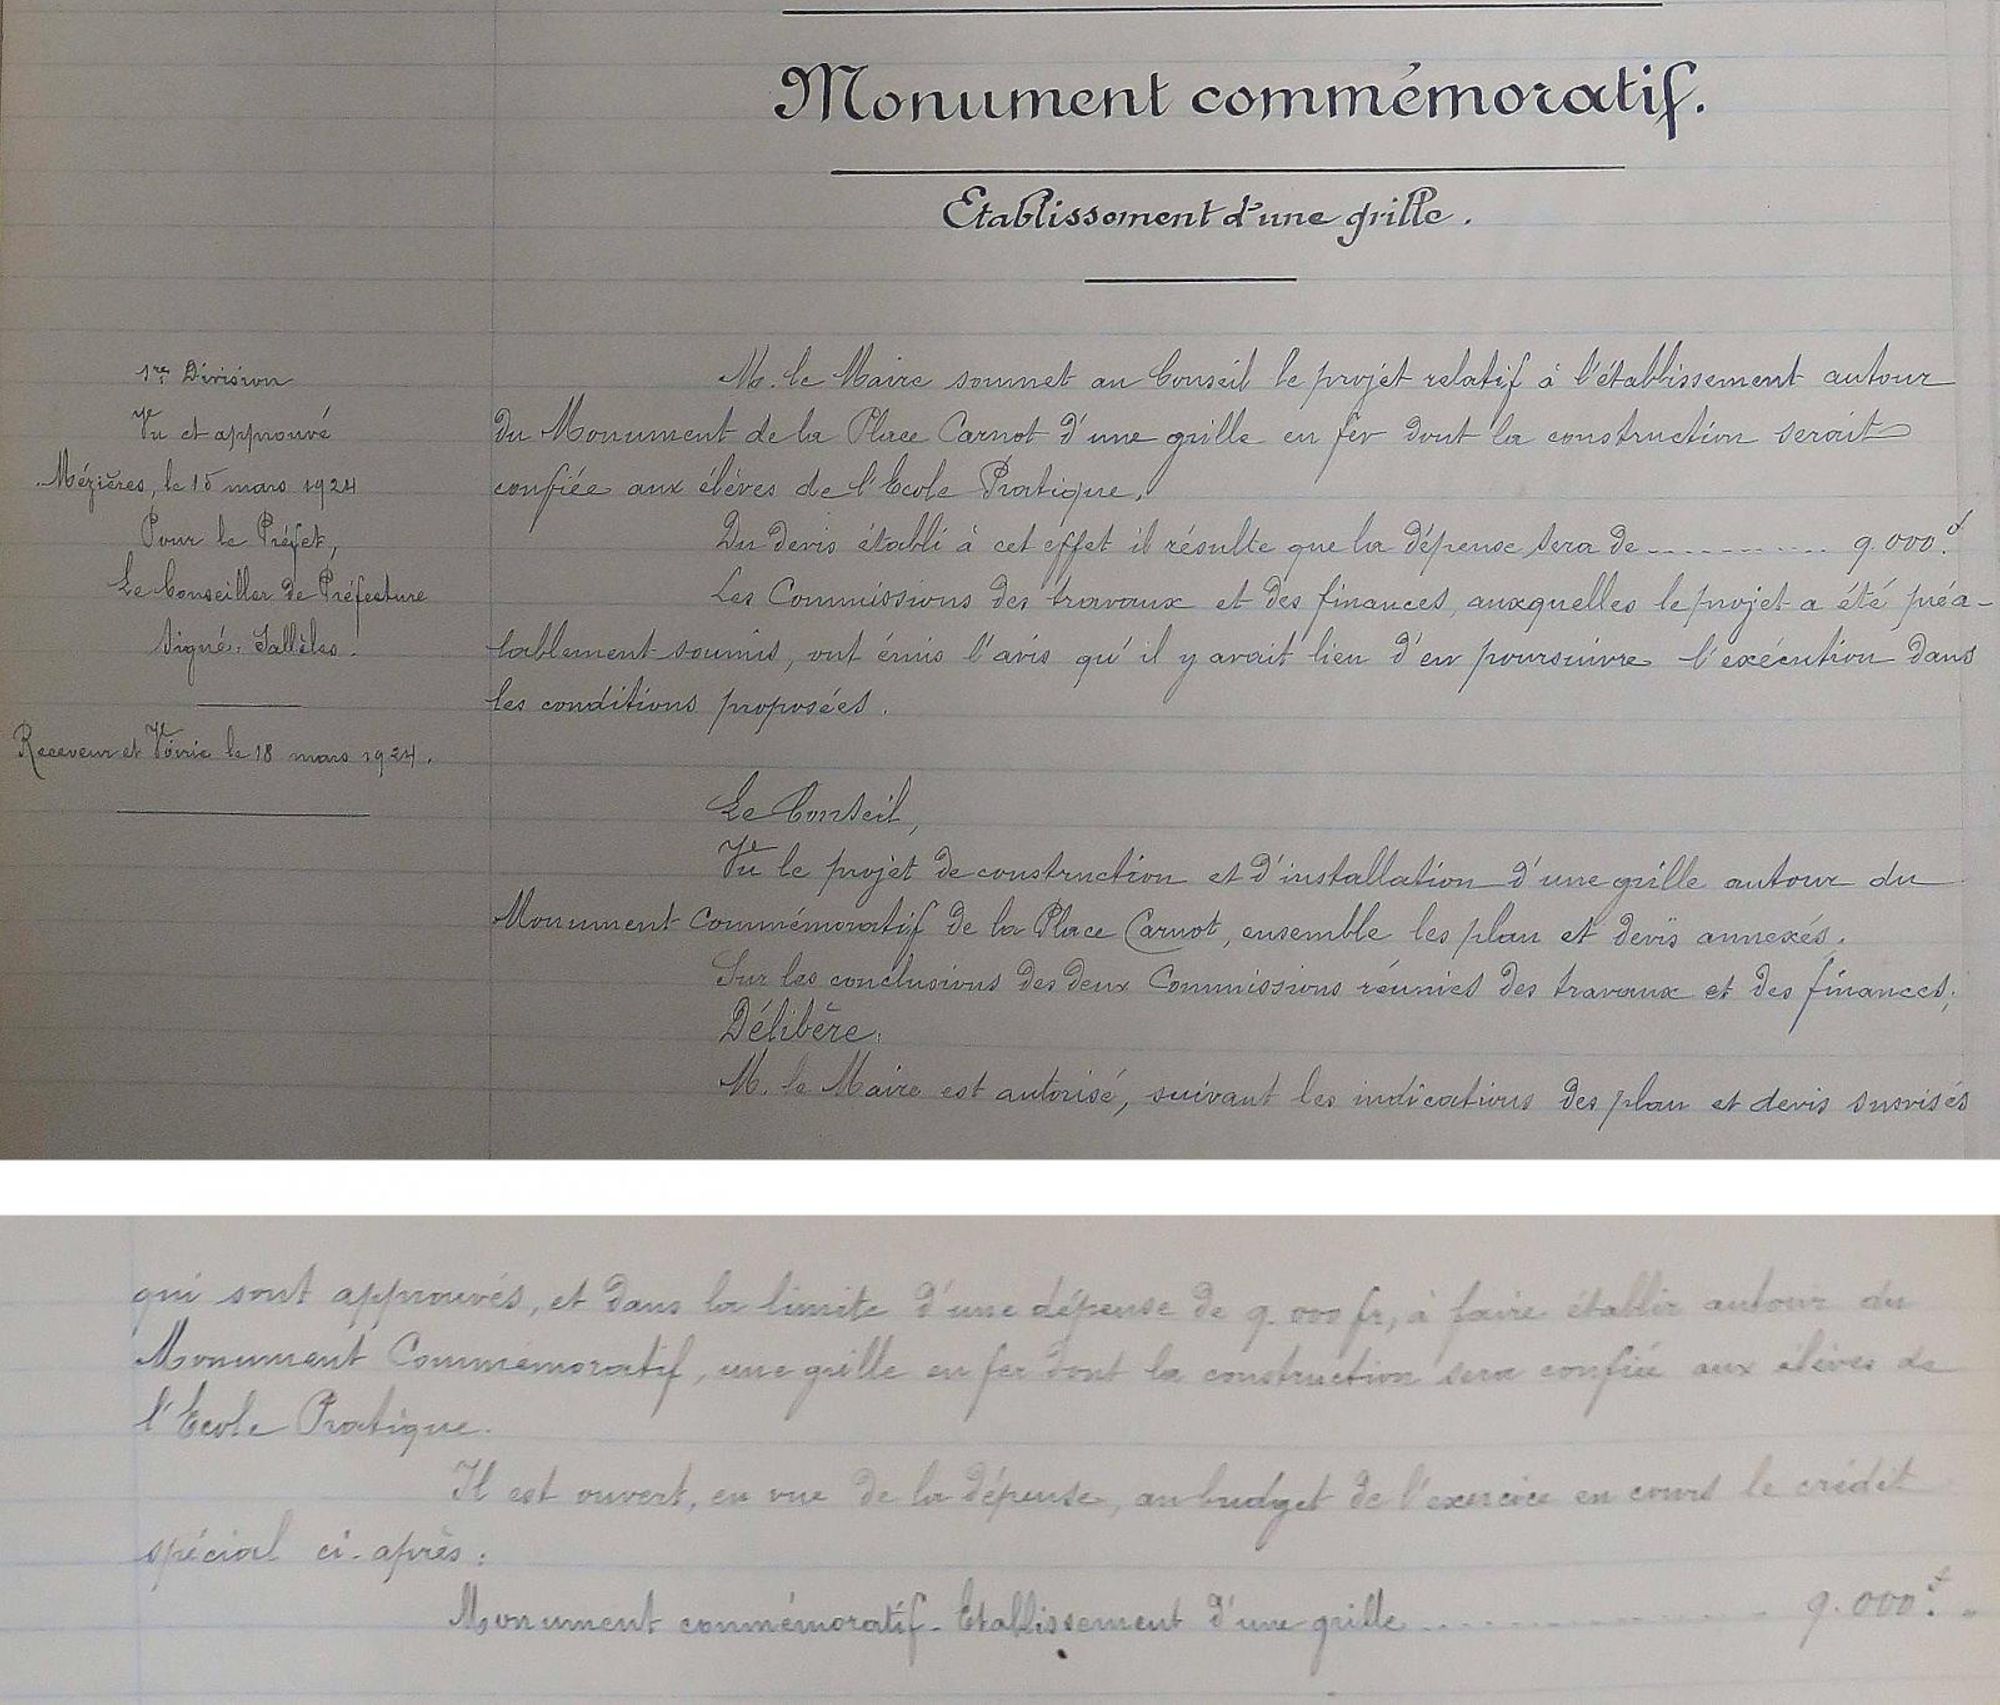 Monument commémoratif.
Etablissement d'une grille.
1re Division
Vu et approuvé
Mézières, le 15 mars 1924
Pour le Préfet,
Le Conseiller de Préfecture
Signé: Sallèles.
Receveur et Voirie le 18 mars 1924.
M. le Maire soumet au Conseil le projet relatif à l'établissement autour
du Monument de la Place Carnot d'une grille en fer dont la construction serait
confiée aux élèves de l'Ecole Pratique.
Du devis établi à cet effet il résulte que la dépense sera de ............ 9.000.f
Les Commissions des travaux et des finances, auxquelles le projet a été préa-
lablement soumis, ont émis l'avis qu'il y avait lieu d'en poursuivre l'exécution dans
les conditions proposées.
Le Conseil,
Vu le projet de construction et d'installation d'une grille autour du
Monument Commémoratif de la Place Carnot, ensemble les plan et devis annexés.
Sur les conclusions des deux Commissions réunies des travaux et des finances;
Délibère:
M. le Maire est autorisé, suivant les indications des plan et devis susvisés
qui sont approuvés, et dans la limite d'une dépense de 9.000 fr, à faire établir autour du
Monument Commémoratif, une grille en fer dont la construction sera confiée aux élèves de
l'Ecole Pratique.
Il est ouvert, en vue de la dépense, au budget de l'exercice en cours le crédit
spécial ci-après:
Monument commémoratif - Etablissement d'une grille ............ 9.000.f "